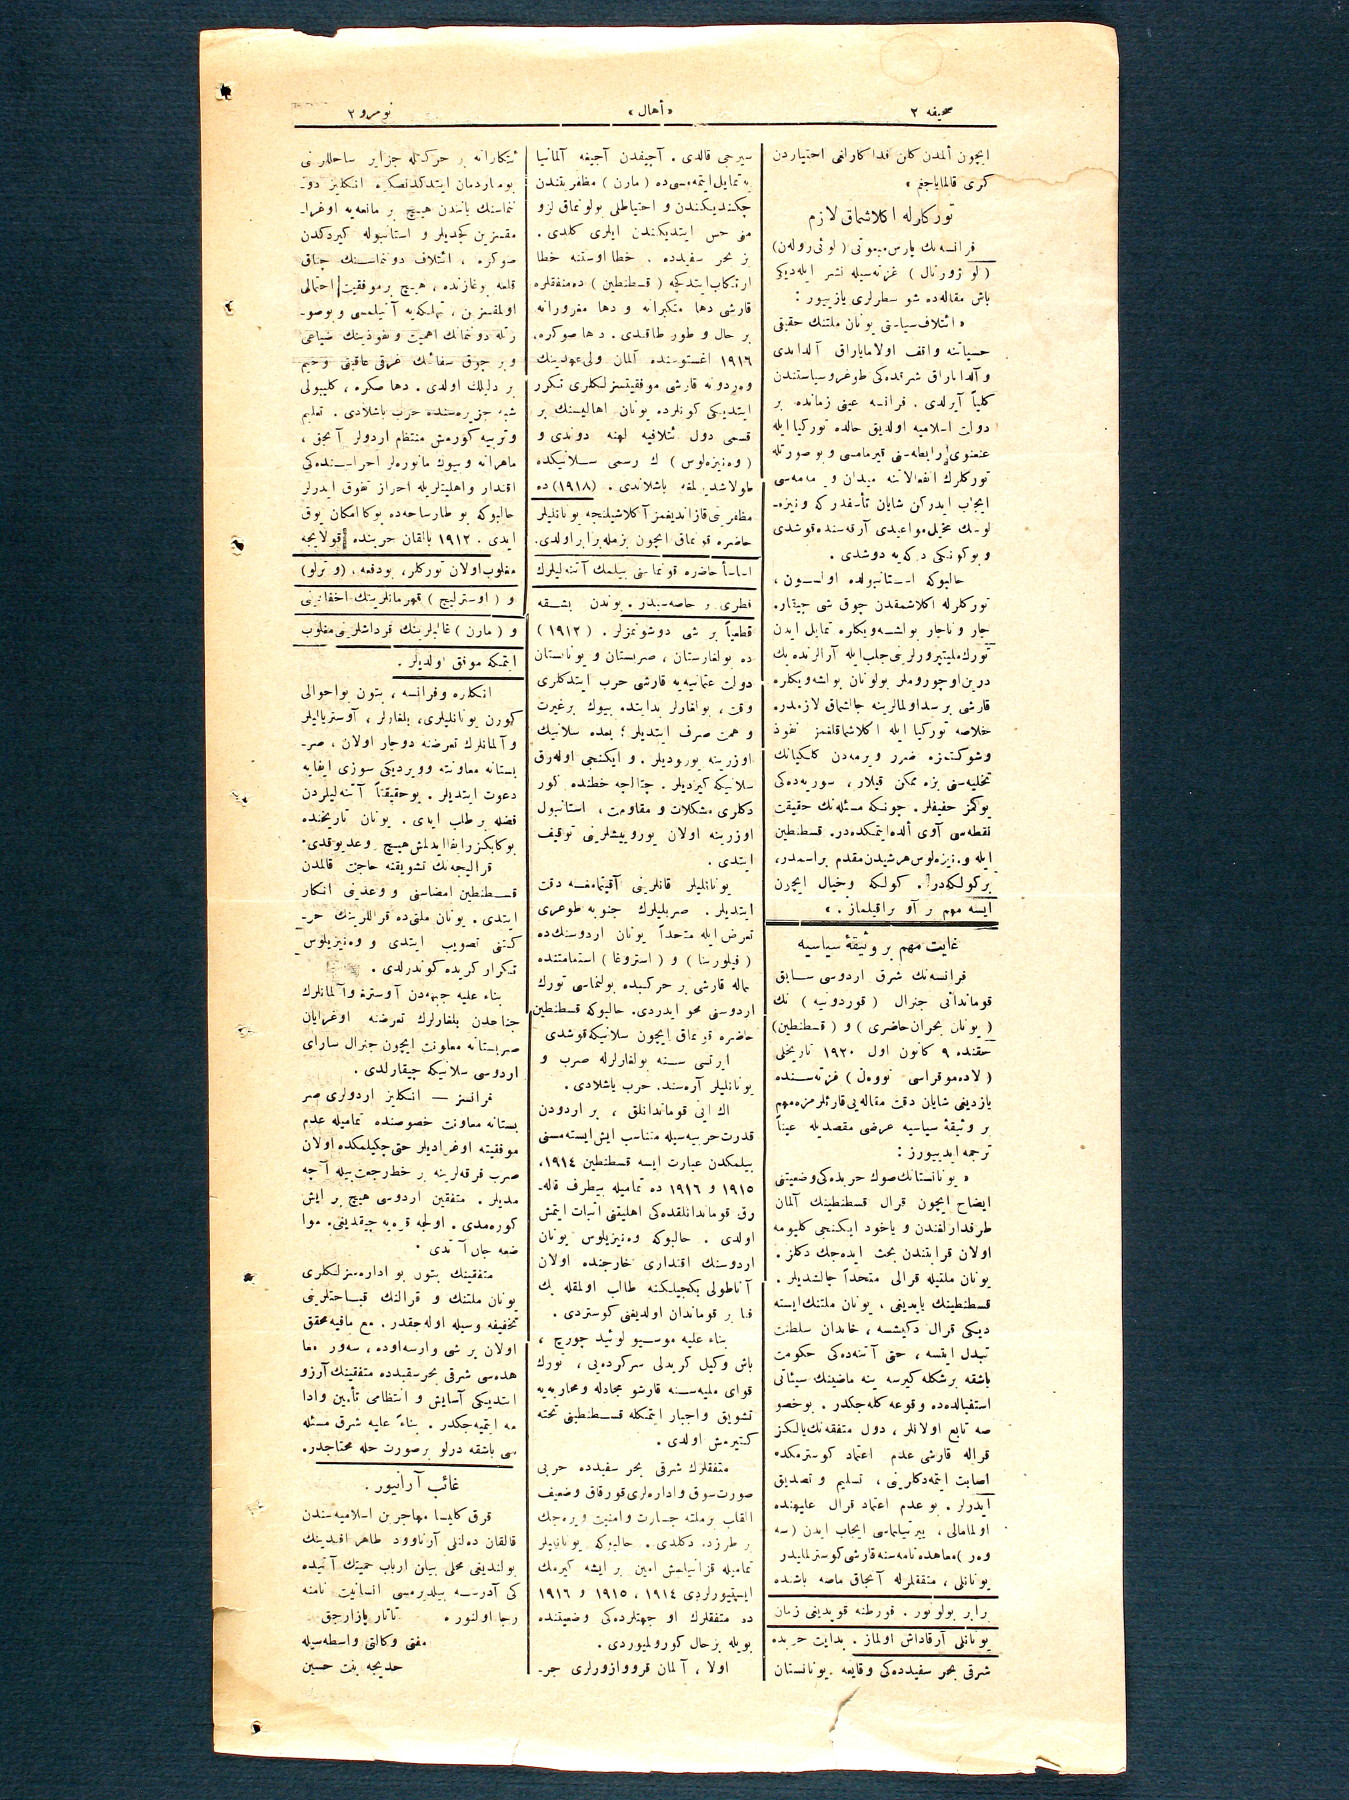 صحیفه ٢
« أهالی »
نومرو ٢
ایچون ألمدن کلن فداکارلغی اختیاردن
کری قالمایاجغم »
تورکلرله اکلاشمق لازم
فرانسه‌نك پارس مبعوثی ( لوئی روله‌ن )
( لو ژورنال ) غزته‌سیله نشر ایله‌دیکی
باش مقاله‌ده شو سطرلری یازییور :
« ائتلاف سیاستی یونان ملتنك حقیقی
حسیاتنه واقف اولامایاراق آلدادی
و آلدانا‌راق شرقده‌کی طوغرو سیاستندن
کلیاً آیرلدی . فرانسه عینی زمانده بر
دولت اسلامیه اولدیغی حالده تورکیا ایله
عنعنوی رابطه‌سنی قیرمامسی و بو صورتله
تورکلرك انفعالاتنه میدان ویرمه‌مسی
ایجاب ایدرکن شایان تأسفدر که ونیزه‌-
لوسك مخیل مواعیدی آرقه‌سنده قوشدی
و بوکونکی درکه‌یه دوشدی .
حالبوکه استانبولده اولسون ،
تورکلرله اکلاشمقدن چوق شی چیقار.
چار و ناچار بولشه‌ویکلره تمایل ایدن
تورك ملیتپرورلرینی جلب ایله آرالرنده پك
درین اوچوروملر بولونان بولشه‌ویکلره
قارشی بر سد اولمالرینه چالشماق لازمدر.
خلاصه تورکیا ایله اکلاشماقلغمز نفوذ
و شوکتمزه ضرر ویرمه‌دن کلیکیانك
تخلیه‌سنی بزه ممکن قیلار ، سوریه‌ده‌کی
یوکمز حفیفلر . چونکه مسئله‌نك حقیقت
نقطه‌سی آوی ألده ایتمکده‌در. قسطنطین
ایله ونیزه‌لوس هر شیدن مقدم بر اسمدر،
بر کولکه‌در!. کولکه وخیال ایچون
ایسه مهم بر آو براقیلماز . »
غایت مهم بر وثیقهٔ سیاسیه
فرانسه‌نك شرق اردوسی سابق
قوماندانی جنرال ( قوردونیه ) نك
( یونان بحران حاضری ) و ( قسطنطین )
حقنده ٩ کانون اول ١٩٢٠ تاریخلی
( لاده‌موقراسی نووه‌ل ) غزته‌سنده
یازدیغی شایان دقت مقاله‌یی قارئلرمزه مهم
بر وثیقهٔ سیاسیه عرضی مقصدیله عیناً
ترجمه ایدییورز :
« یونانستانك صوك حربده‌کی وضعیتنی
ایضاح ایچون قرال قسطنطینك آلمان
طرفدارلغندن و یاخود ایکنجی کلیومه
اولان قرابتندن بحث ایده‌جك دکلز .
یونان ملتیله قرالی متحداً چالشدیلر .
قسطنطینك یاپدیغی ، یونان ملتنك ایسته
دیکی قرال دکیشسه ، خاندان سلطنت
تبدل ایتسه ، حتی آتنه‌ده‌کی حکومت
باشقه بر شکله کیرسه ینه ماضینك سیئاتی
استقبالده‌ده وقوعه کله‌جکدر . بو خصو
صه تابع اولانلر ، دول متفقه‌نك یالکز
قراله قارشی عدم اعتماد کوسترمکده
اصابت ایتمه‌دکلرینی ، تسلیم و تصدیق
ایدرلر . بو عدم اعتماد قرال علیهنده
اولمامالی ، ییرتیلماسی ایجاب ایدن ( سه
وهر ) معاهده‌نامه‌سنه قارشی کوسترلمایدر
یونانلی ، متفقلرله آنجاق ماصه باشنده
برابر بولونور . فورطنه قوپدیغی زمان
یونانلی آرقاداش اولماز . بدایت حربده
شرقی بحر سفیدده‌کی وقایعه یونانستان
سیرجی قالدی . آجیقدن آجیغه آلمانیا
یه تمایل ایتمه‌سی‌ده ( مارن ) مظفریتندن
چکندیکندن و احتیاطلی بولونماق لزو
منی حس ایتدیکندن ایلری کلدی .
بز بحر سفیدده . خطا اوستنه خطا
ارتکاب ایتدکجه ( قسطنطین ) ده متفقلره
قارشی دها متکبرانه و دها مغرورانه
بر حال و طور طاقندی . دها صوکره،
١٩١٦ اغستوسنده آلمان ولی‌عهدینك
وه‌ردونه قارشی موفقیتسزلکلری تکرر
ایتدیکی کونلرده یونان اهالیسنك بر
قسمی دول ئتلافیه لهنه دوندی و
( وه‌نیزه‌لوس ) ك رسمی سلانیکده
طولاشدیرلمغه باشلاندی . (١٩١٨) ده
مظفریتی قازاندیغمز آکلاشیلنجه یونانلیلر
حاضره قونماق ایچون بزمله برابر اولدی.
اساساً حاضره قونماسنی بیلمك آتنه‌لیلرك
فطری بر خاصه‌سیدر . بوندن بشقه
قطعیاً بر شی دوشونمزلر . ( ١٩١٢ )
ده بولغارستان ، صربستان و یونانستان
دولت عثمانیه‌یه قارشی حرب ایتدکلری
وقت ، بولغارلر بدایتده بیوك بر غیرت
و همت صرف ایتدیلر ؛ بعده سلانیك
اوزرینه یورودیلر . و ایکنجی اوله‌رق
سلانیکه کیردیلر . چتالجه خطنده کور
دکلری مشکلات و مقاومت ، استانبول
اوزرینه اولان یورویشلرینی توقیف
ایتدی .
یونانلیلر قانلرینی آقیتمامغه دقت
ایتدیلر . صربلیلرك جنوبه طوغری
تعرض ایله متحداً یونان اردوسنك‌ده
( فیلورینا ) و ( استروغا ) استقامتنده
شماله قارشی بر حرکتده بولنماسی تورك
اردوسنی محو ایدردی. حالبوکه قسطنطین
حاضره قونماق ایچون سلانیکه قوشدی
ایرتسی سنه بولغارلرله صرب و
یونانلیلر آره‌سنده حرب باشلادی .
اك ایی قوماندانلق ، بر اردودن
قدرت حربیه‌سیله متناسب ایش ایسته‌مسنی
بیلمکدن عبارت ایسه قسطنطین ١٩١٤،
١٩١٥ و ١٩١٦ ده تمامیله بیطرف قاله‌-
رق قوماندانلقده‌کی اهلیتنی اثبات ایتمش
اولدی . حالبوکه وه‌نیزیلوس یونان
اردوسنك اقتداری خارجنده اولان
آناطولی بکچیلکنه طالب اولمقله پك
فنا بر قوماندان اولدیغنی کوستردی .
بناء علیه موسیو لوئید جورج ،
باش وکیل کریدلی سرکرده‌یی ، تورك
قوای ملیه‌سنه قارشو مجادله و محاربه‌یه
تشویق و اجبار ایتمکله قسطنطینی تخته
کتیرمش اولدی .
متفقلرك شرقی بحر سفیدده حربی
صورت سوق و اداره‌لری قورقاق و ضعیف
القلب بر ملته جسارت و امنیت ویره‌جك
بر طرزده دکلدی . حالبوکه یونانلیلر
تمامیله قزانیلمش امین بر ایشه کیرمك
ایستیورلردی ١٩١٤ ، ١٩١٥ و ١٩١٦
ده متفقلرك او جهتلرده‌کی وضعیتنده
بویله بر حال کورولمیوردی .
اولا ، آلمان قرووازورلری جر-
ئتکارانه بر حرکتله جزایر ساحللرینی
بومباردمان ایتدکدنصکره انکلیز دو-
ننماسنك یانندن هیچ بر مانعه‌یه اوغرا-
مقسزین کچدیلر و استانبوله کیردکدن
صوکره ، ائتلاف دونماسنك چناق
قلعه بوغازنده ، هیچ بر موفقیت احتمالی
اولمقسزین ، تهلکه‌یه آتیلمسی و بو صو-
رتله دونمانك اهمیت و نفوذینك ضیاعی
و بر چوق سفائنك غرقی عاقبتی وخیم
بر دلیلك اولدی . دها صکره ، کلیبولی
شبه جزیره‌سنده حرب باشلادی . تعلیم
و تربیه کورمش منتظم اردولر آنجق ،
ماهرانه و بیوك مانوره‌لر اجراسنده‌کی
اقتدار و اهلیتلریله احراز تفوق ایدرلر
حالبوکه بو طار ساحه‌ده بوکا امکان یوق
ایدی . ١٩١٢ بالقان حربنده قولایجه
مغلوب اولان تورکلر ، بودفعه ، ( وترلو )
و ( اوسترلیچ ) قهرمانلرینك اخفادینی
و ( مارن ) غالبلرینك قرداشلرینی مغلوب
ایتمکه موفق اولدیلر .
انکلتره وفرانسه ، بتون بو احوالی
کورن یونانلیلری، بلغارلر ، آوستریالیلر
و آلمانلرك تعرضنه دوچار اولان ، صر-
بستانه معاونته وویردیکی سوزی ایفایه
دعوت ایتدیلر . بو حقیقتاً آتنه‌لیلردن
فضله بر طلب ایدی . یونان تاریخنده
بوکا بکزر ایفا ایدلمش هیچ وعد یوقدی.
قرالیچه‌نك تشویقنه حاجت قالمدن
قسطنطین امضاسنی و وعدینی انکار
ایتدی . یونان ملتی‌ده قراللرینك حر-
کتنی تصویب ایتدی و وه‌نیزیلوس
تکرار کریده کوندرلدی .
بناء علیه جبهه‌دن آوسترو آلمانلرك
جناحدن بلغارلرك تعرضنه اوغرایان
صربستانه معاونت ایچون جنرال سارای
اردوسی سلانیکه چیقارلدی .
فرانسز — انکلیز اردولری صر
بستانه معاونت خصوصنده تمامیله عدم
موفقیته اوغرادیلر حتی چکیلمکده اولان
صرب فرقه‌لرینه بر خط رجعت بیله آچه
مدیلر . متفقین اردوسی هیچ بر ایش
کوره‌مدی . اولجه قره‌یه چیقدیغی. موا
ضعه جان آتدی .
متفقینك بتون بو اداره‌سزلکلری
یونان ملتنك و قرالنك قباحتلرینی
تخفیفه وسیله اوله‌جقدر . مع مافیه محقق
اولان بر شی وارسه‌اوده ، سه‌ور معا
هده‌سی شرقی بحر سفیدده متفقینك آرزو
ایتدیکی آسایش و انتظامی تأمین وادا
مه ایتمیه‌جکدر . بناءً علیه شرق مسئله
سی باشقه درلو بر صورت حله محتاجدر.
غائب آرانیور .
قرق کلیسا مهاجرین اسلامیه‌سندن
قالقان ده‌لنلی آرناوود طاهر افندینك
بولندیغی محلی بیان ارباب حمیتك آتیده
کی آدرسه بیلدیرمسی انسانیت نامنه
رجا اولنور . تاتار پازارجق
مفتی وکالتی واسطه‌سیله
خدیجه بنت حسین